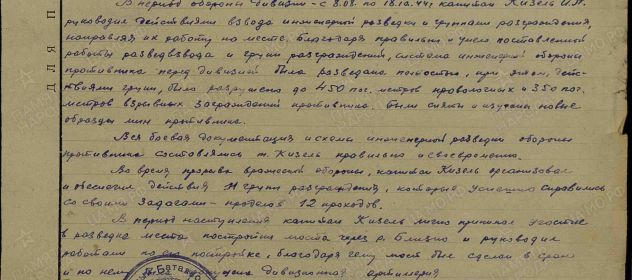 В период обороны дивизии - с 8.08. по 18.10.44г капитан Кизель И.П.
руководил действиями взвода инженерной разведки и группами разграждения,
направляя их работу на месте. Благодаря правильно и умело поставленной
работы разведвзвода и групп разграждений, система инженерной обороны
противника перед дивизией была разведана полностью, при этом, дейс-
твиями групп, было разрушено до 450 пог. метров проволочных и 350 пог.
метров взрывных заграждений противника. Были сняты и изучены новые
образцы мин противника.
Вся боевая документация и схемы инженерной разведки обороны
противника составлялись т. Кизель правильно и своевременно.
Во время прорыва вражеской обороны, капитан Кизель организовал
и обеспечил действия 11 групп разграждения, которые успешно справились
со своими задачами - проделав 12 проходов.
В период наступления капитан Кизель лично принимал участие
в разведке места постройки моста через р. и руководил
работами по его постройке, благодаря чему мост был сделан в срок
и по нему дивизионная артиллерия
ДЛЯ П